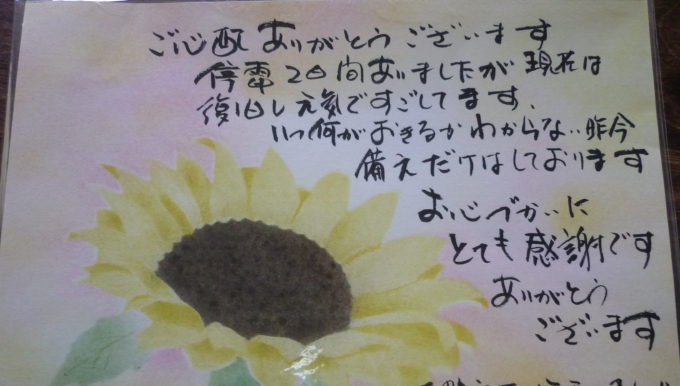 ご心配ありがとうございます
停電2日間ありましたが現在は
復旧し元気ですごしてます、
いつ何がおきるかわからない昨今
備えだけはしております
お心づかいに
とても感謝です
ありがとう
ございます